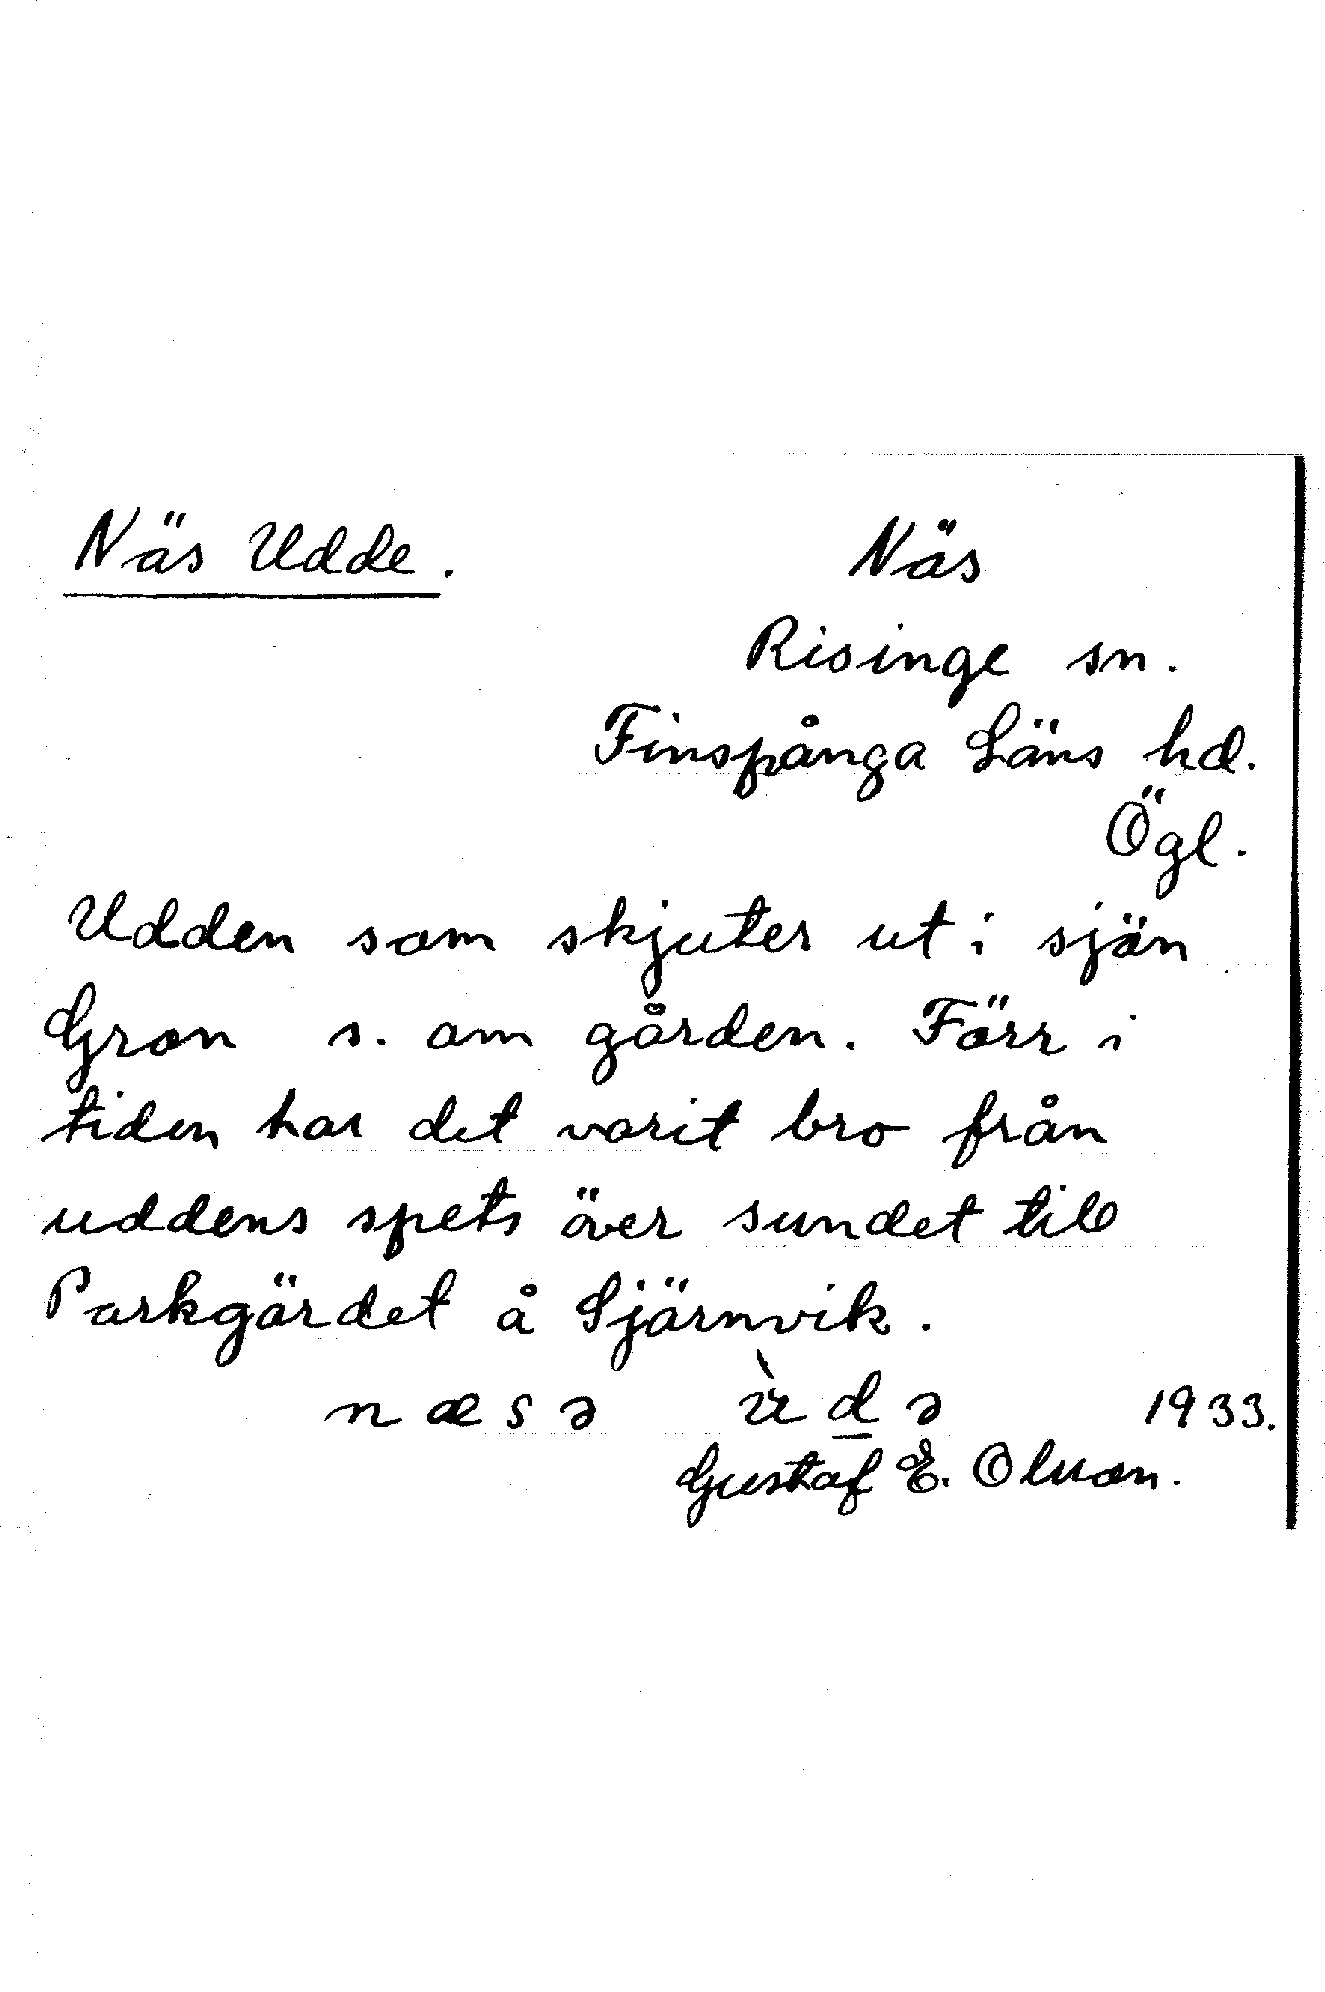 Näs Udde.
Näs
Risinge sn.
Finspånga Läns hd.
Ögl.
Udden som skjuter ut i sjön
Gron s. om gården. Förr i
tiden har det varit bro från
uddens spets över sundet till
Parkgärdet å Sjärnvik.
næsə ùdə 1933.
Gustaf E. Olsson.